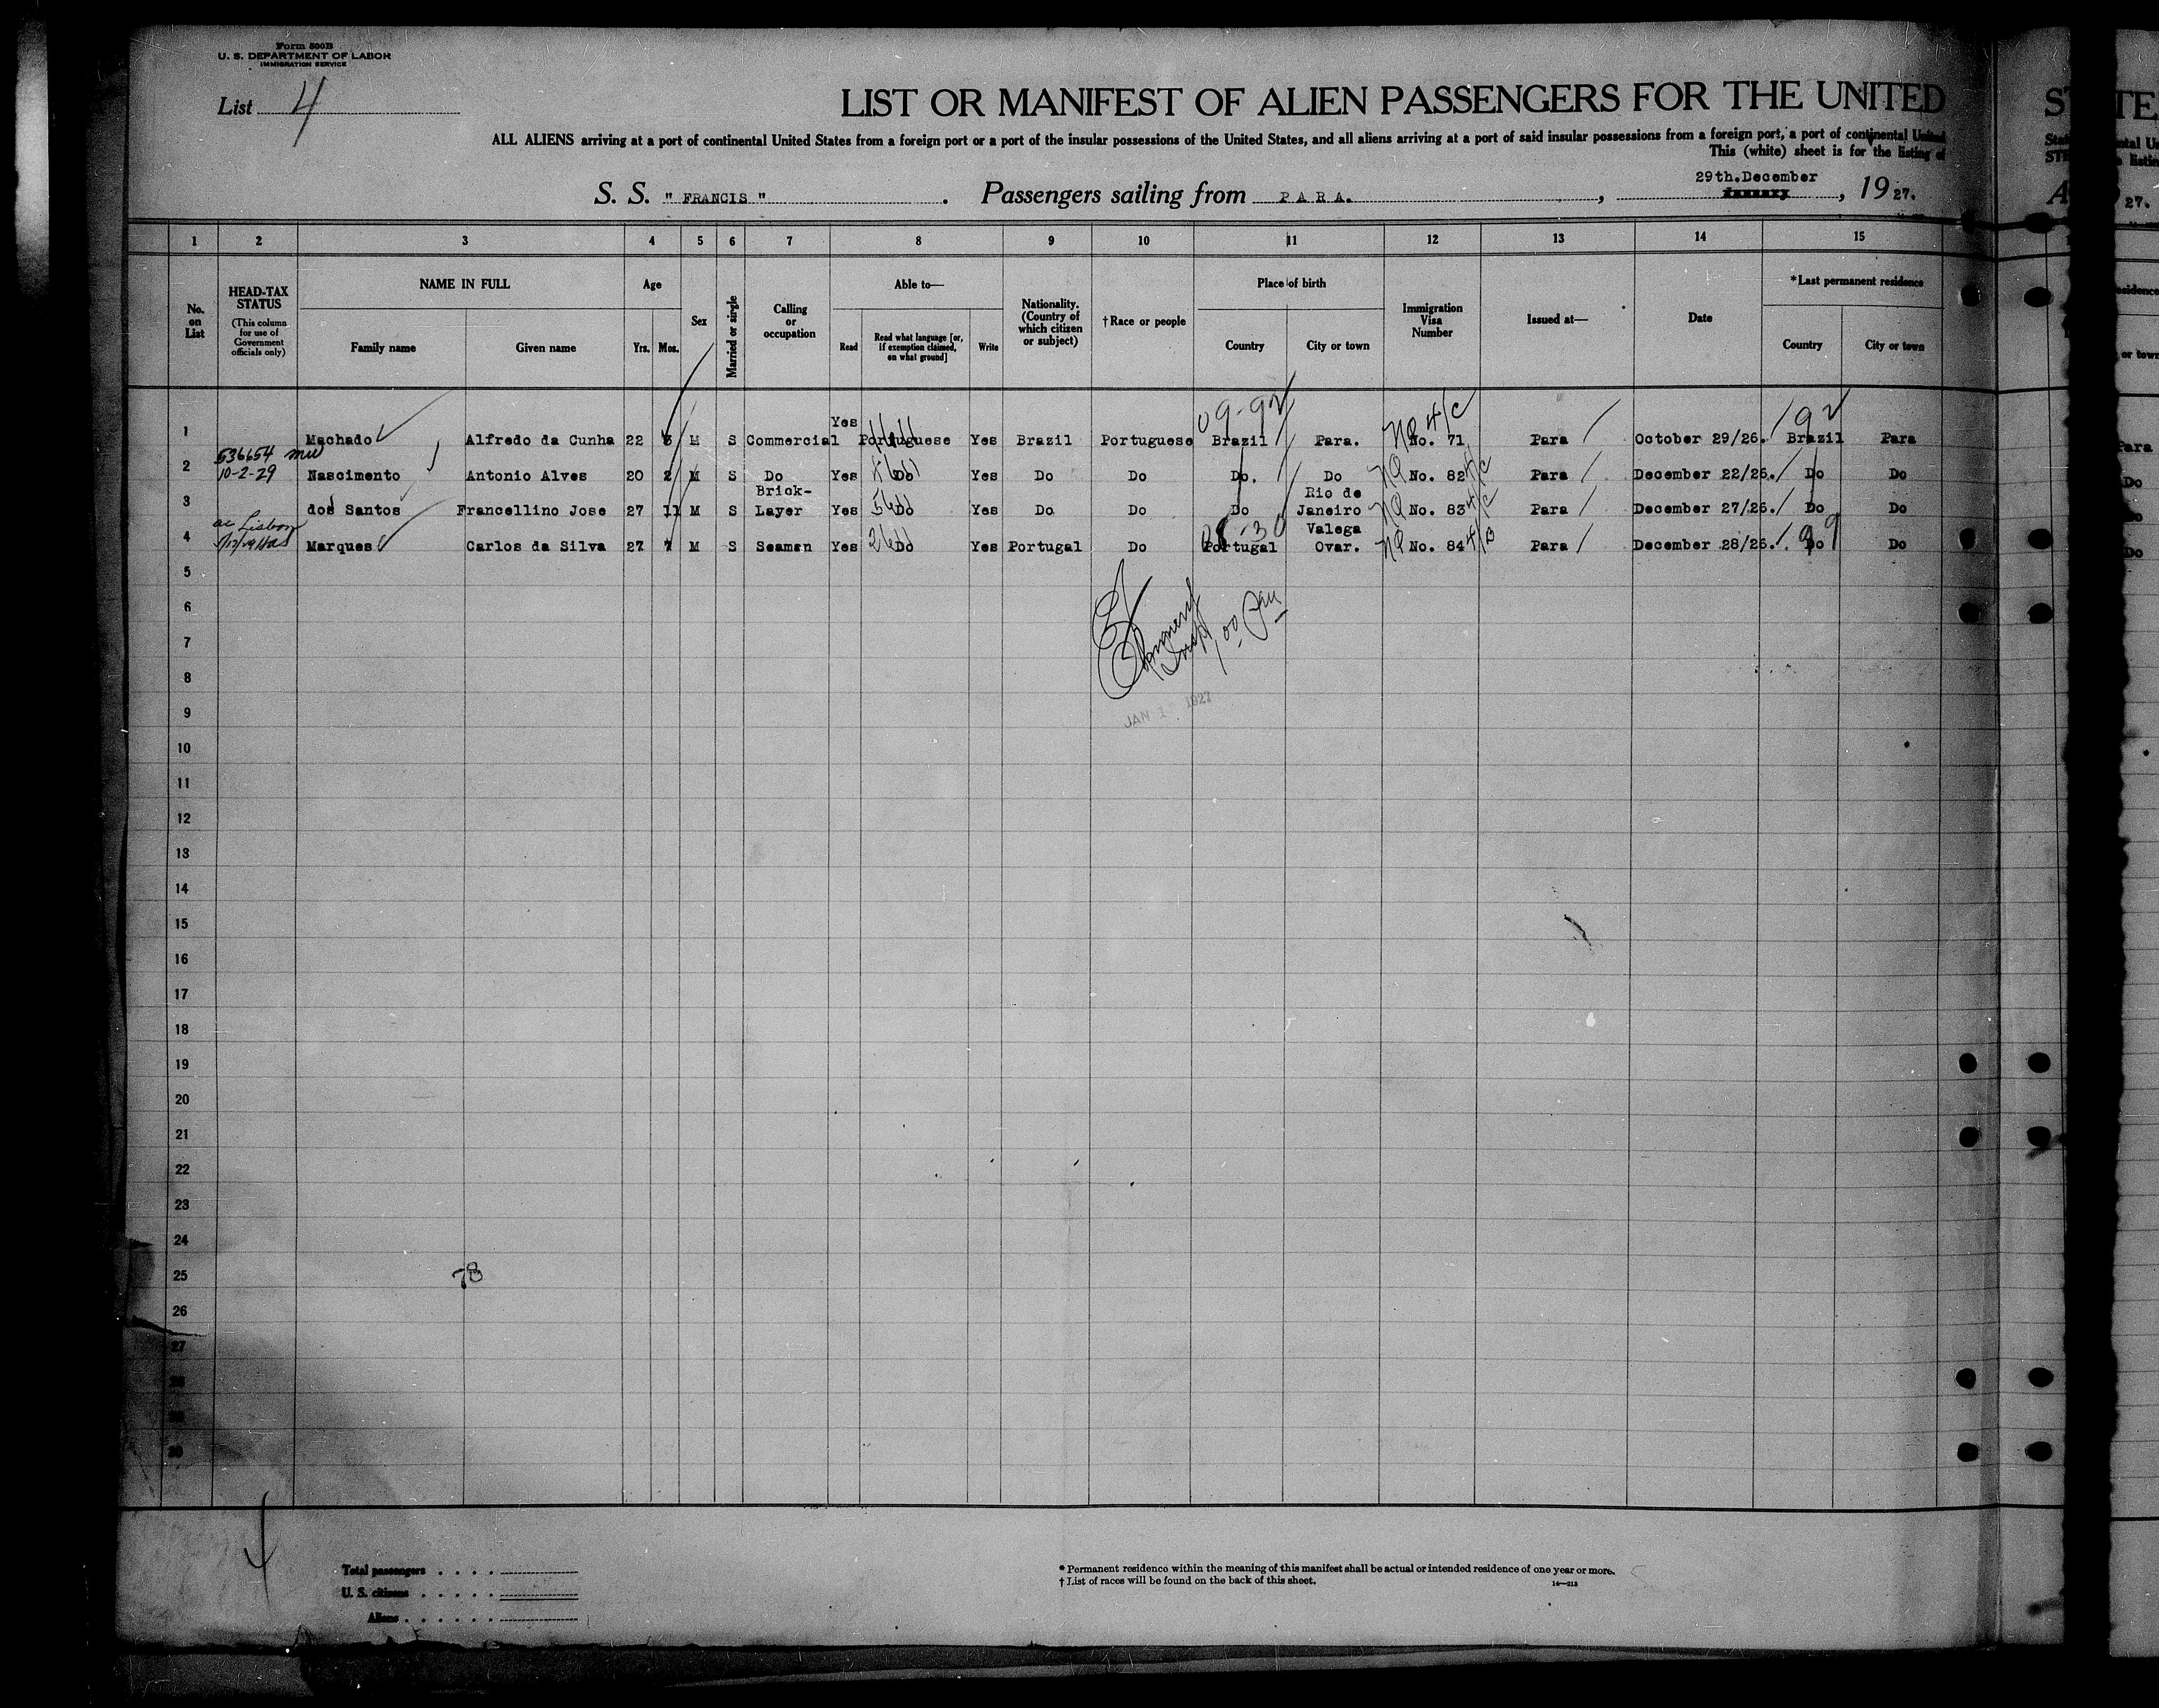 Form 500B
U. S. DEPARTMENT OF LABOR
IMMIGRATION SERVICE
List 4
LIST OR MANIFEST OF ALIEN PASSENGERS FOR THE UNITED
ALL ALIENS arriving at a port of continental United States from a foreign port or a port of the insular possessions of the United States, and all aliens arriving at a port of said insular possessions from a foreign port, a port of continental United
This (white) sheet is for the listing of
29th.December
S. S. " FRANCIS " . Passengers sailing from P A R A. , , 19 27.
1 2 3 4 5 6 7 8 9 10 11 12 13 14 15
No. on List
HEAD-TAX STATUS (This column for use of Government officials only)
NAME IN FULL
Family name Given name
Age
Yrs. Mos.
Sex
Married or single
Calling or occupation
Able to—
Read Read what language [or, if exemption claimed, on what ground] Write
Nationality. (Country of which citizen or subject)
†Race or people
Place of birth
Country City or town
Immigration Visa Number
Issued at—
Date
*Last permanent residence
Country City or town
09-92 192
1 Machado Alfredo da Cunha 22 M S Commercial Yes Portuguese Yes Brazil Portuguese Brazil Para. No. 71 Para October 29/26. Brazil Para
536654
2 10-2-29 Nascimento Antonio Alves 20 2 M S Do Yes Do Yes Do Do Do. Do No. 82 Para December 22/26. Do Do
3 dos Santos Francellino Jose 27 11 M S Brick-Layer Yes Do Yes Do Do Do Rio de Janeiro No. 83 Para December 27/26. Do Do
Lisbon
4 Marques Carlos da Silva 27 7 M S Seaman Yes Do Yes Portugal Do Portugal Valega Ovar. No. 84 Para December 28/26. Do Do
5
6
7
8
9
JAN 1 1927
10
11
12
13
14
15
16
17
18
19
20
21
22
23
24
25
78
26
27
28
29
30
4
Total passengers
U. S. citizens
Aliens
* Permanent residence within the meaning of this manifest shall be actual or intended residence of one year or more.
† List of races will be found on the back of this sheet.
14—213